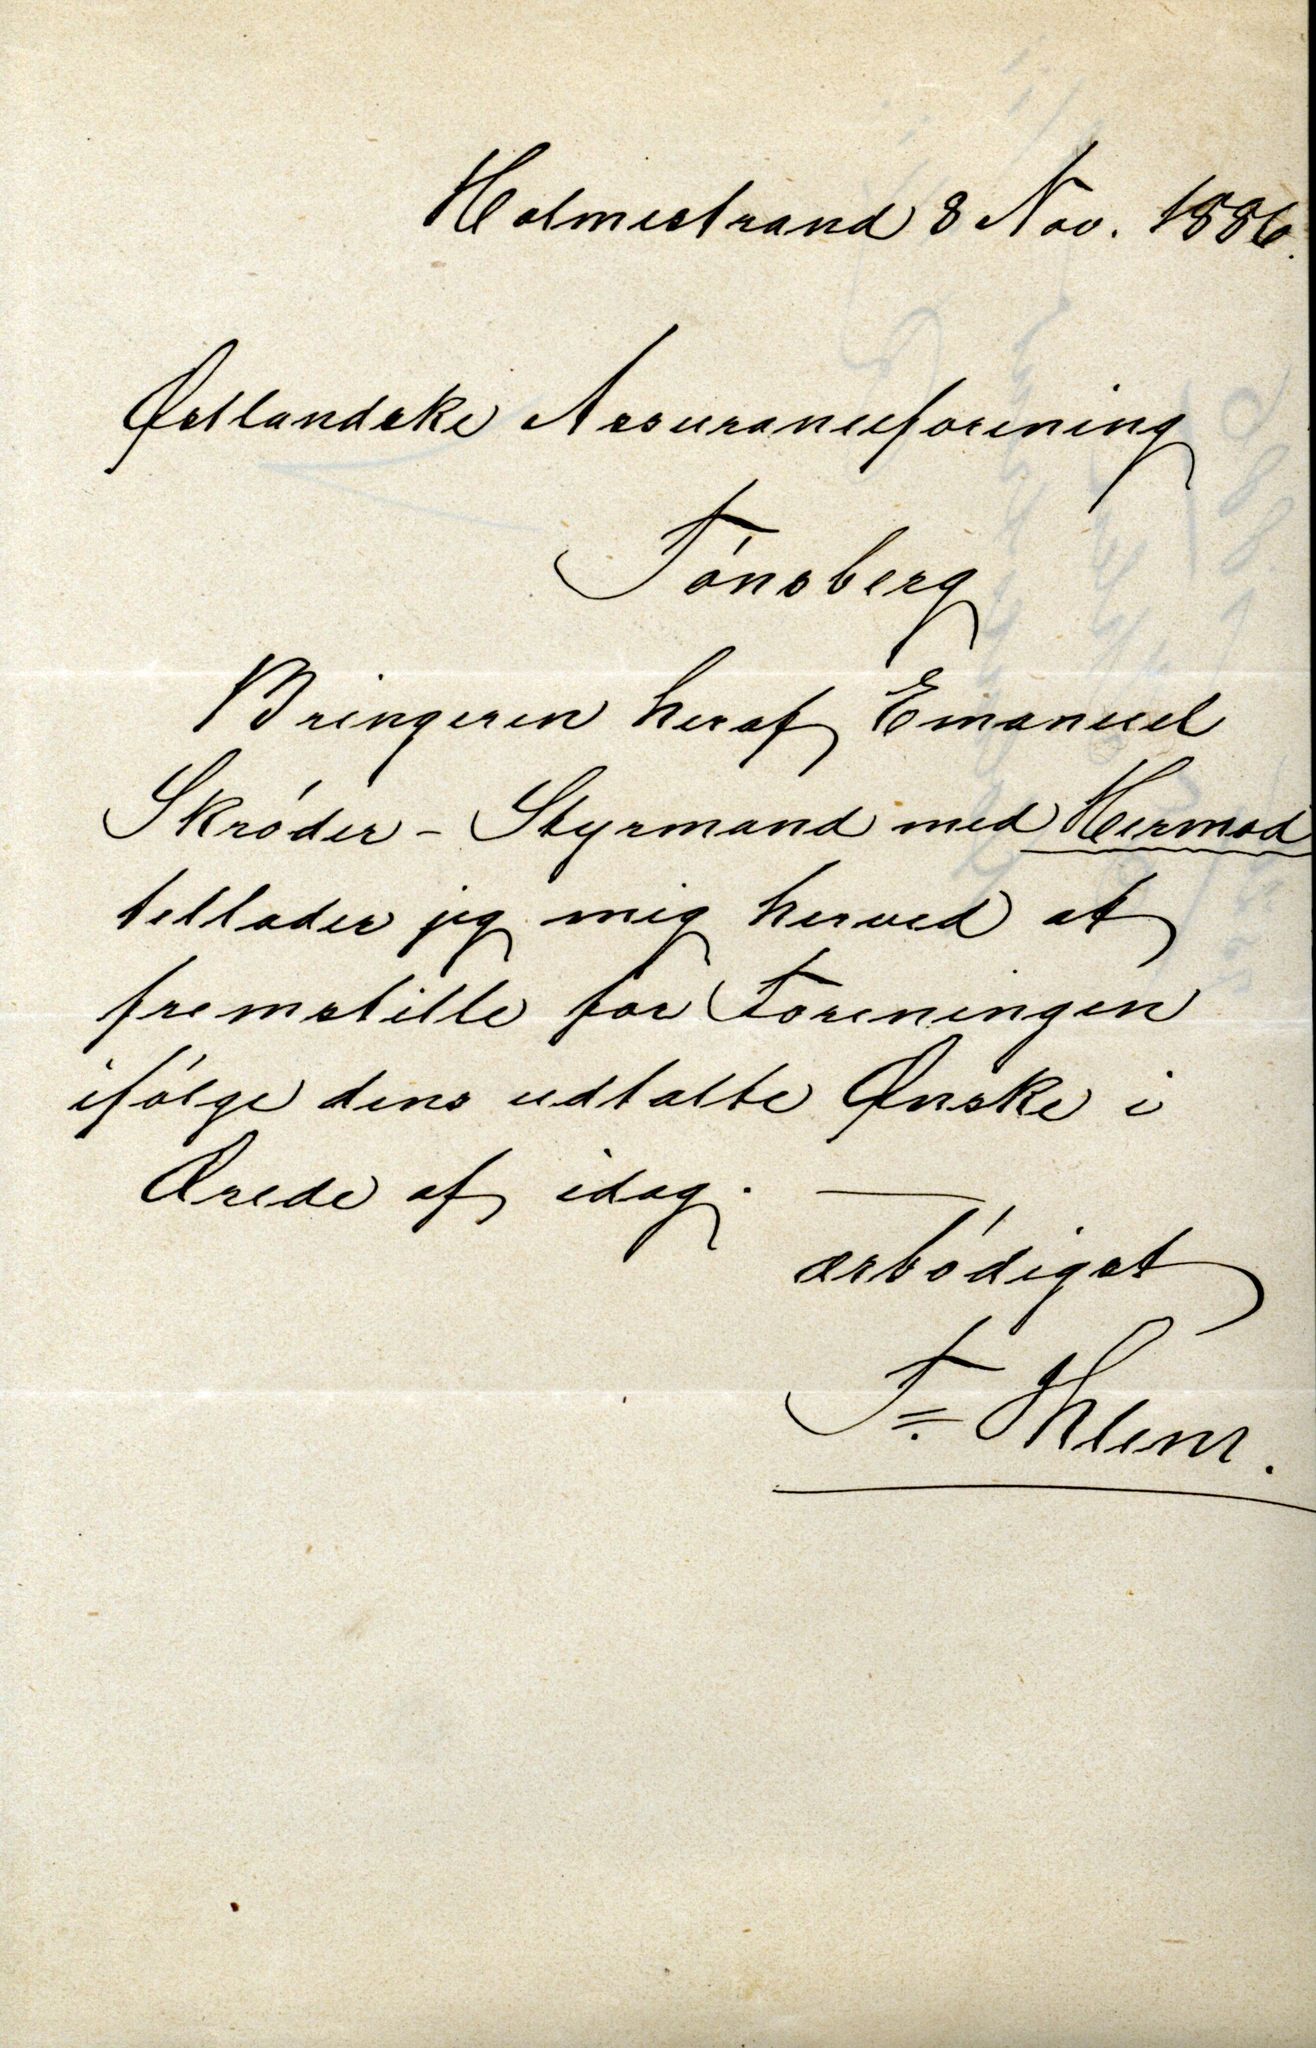 Holmestrand 8 Nov. 1886.
Østlandske Assuranceforening
Tónsberg
Bringeren heraf Emanuel
Skróder - Styrmand med Hermod
tillader jeg mig herved at
fremstille for Foreningen
ifólge dens udtalte Ønske i
Ærede af idag. —
ærbódigst
F. Ihlen.